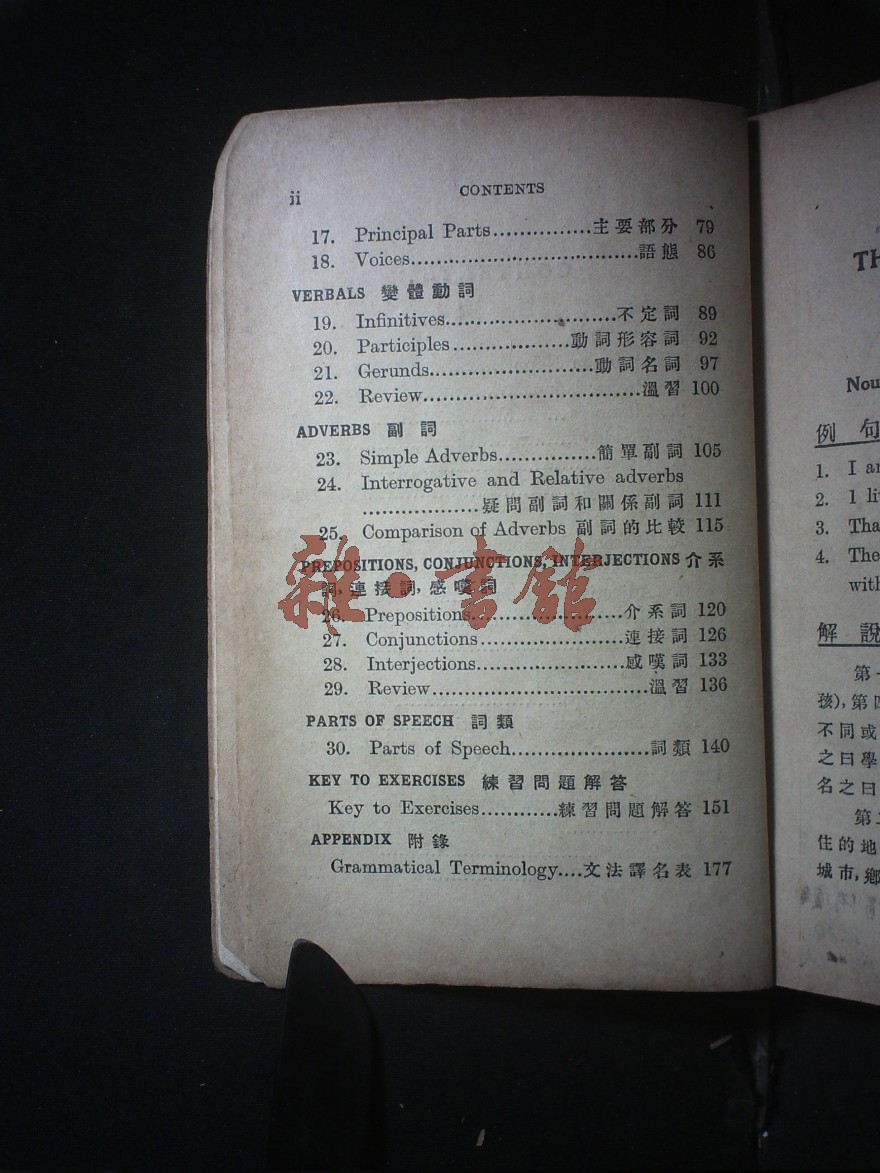 ii CONTENTS
17. Principal Parts...............主要部分 79
18. Voices....................................語態 86
VERBALS 變體動詞
19. Infinitives...........................不定詞 89
20. Participles..................動詞形容詞 92
21. Gerunds..........................動詞名詞 97
22. Review..................................溫習 100
ADVERBS 副詞
23. Simple Adverbs...............簡單副詞 105
24. Interrogative and Relative adverbs
..................疑問副詞和關係副詞 111
25. Comparison of Adverbs 副詞的比較 115
PREPOSITIONS, CONJUNCTIONS, INTERJECTIONS 介系
詞, 連接詞, 感嘆詞
雜·書館
26. Prepositions........................介系詞 120
27. Conjunctions.......................連接詞 126
28. Interjections.......................感嘆詞 133
29. Review..................................溫習 136
PARTS OF SPEECH 詞類
30. Parts of Speech.....................詞類 140
KEY TO EXERCISES 練習問題解答
Key to Exercises............練習問題解答 151
APPENDIX 附錄
Grammatical Terminology....文法譯名表 177
TH
Nou
例句
1. I a
2. I li
3. Tha
4. The
with
解說
第一
孩), 第四
不同或
之曰學
名之曰
第二
住的地
城市, 鄉